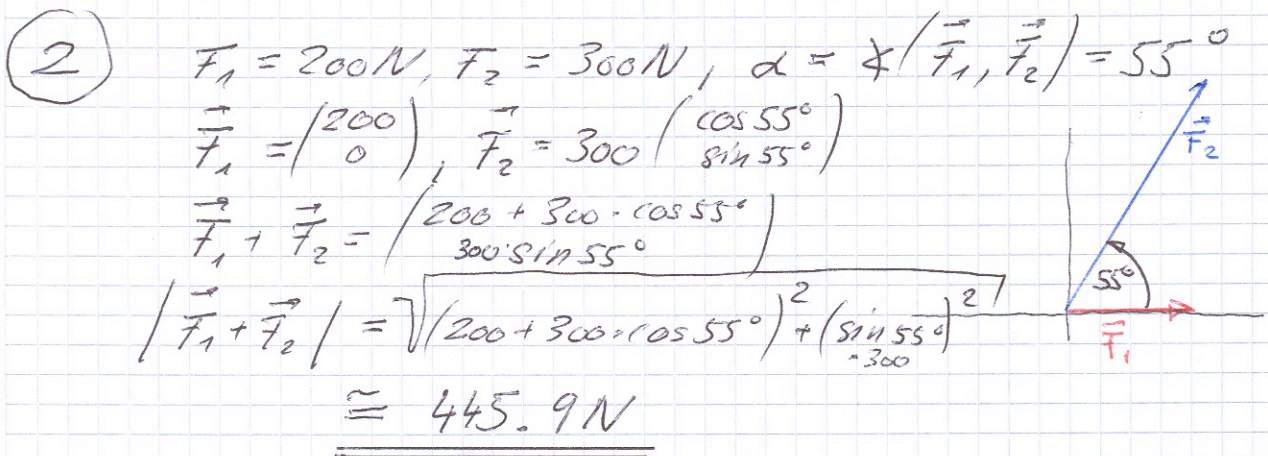 2 F₁ = 200N, F₂ = 300N, α = ∢(F⃗₁, F⃗₂) = 55°
F⃗₁ = (200 0), F⃗₂ = 300 (cos 55° sin 55°)
F⃗₁ + F⃗₂ = (200 + 300 · cos 55° 300 · sin 55°)
|F⃗₁ + F⃗₂| = √((200 + 300 · cos 55°)² + (sin 55° · 300)²)
≅ 445.9 N
F⃗₂
55°
F⃗₁